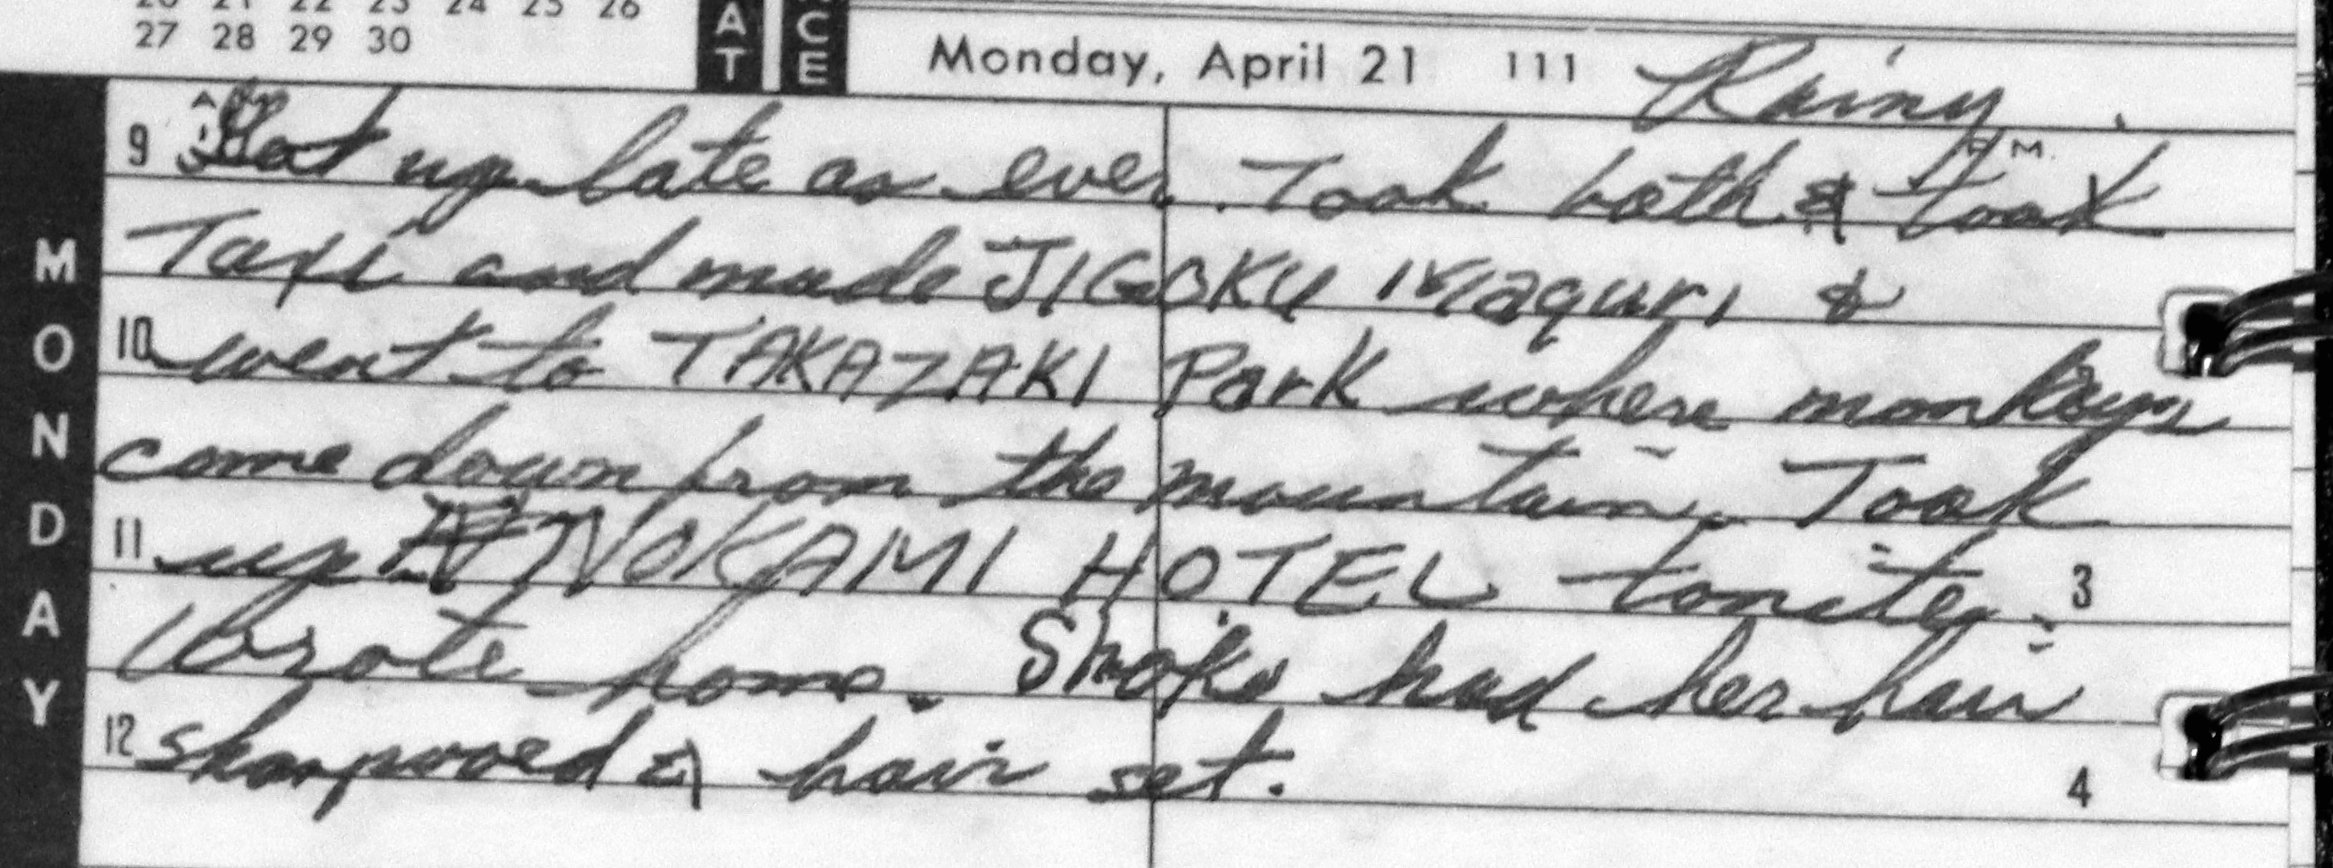 20 21 22 23 24 25 26
27 28 29 30
AT
CE
Monday, April 21 111 Rainy.
MONDAY
9 Got up late as ever. Took bath & took
Taxi and made JIGOKU Maguri &
10 went to TAKAZAKI Park where monkeys
come down from the mountain. Took
11 up NOKAMI HOTEL tonite. 3
Wrote home. Shoko had her hair
12 shampooed & hair set. 4